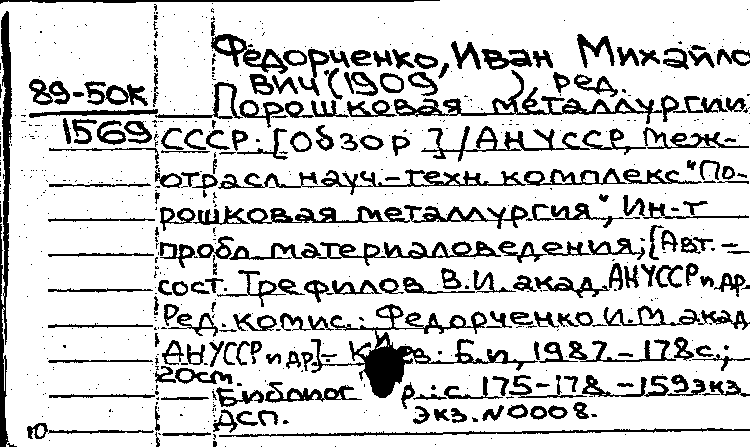 Федорченко, Иван Михайло
вич (1909 ), ред.
89-50К
Порошковая металлургии
1569
СССР: [Обзор ] / АН УССР, Меж-
отрасл. науч.-техн. комплекс "По-
рошковая металлургия", Ин-т
пробл. материаловедения; [Авт.-
сост. Трефилов В.И. акад. АН УССР и др.
Ред. комис.: Федорченко И.М. акад
АН УССР и др.] - Киев: Б.и, 1987. - 178с.;
20см.
Библиогр.: с. 175-178. - 159 экз
ДСП. экз. N0008.
10